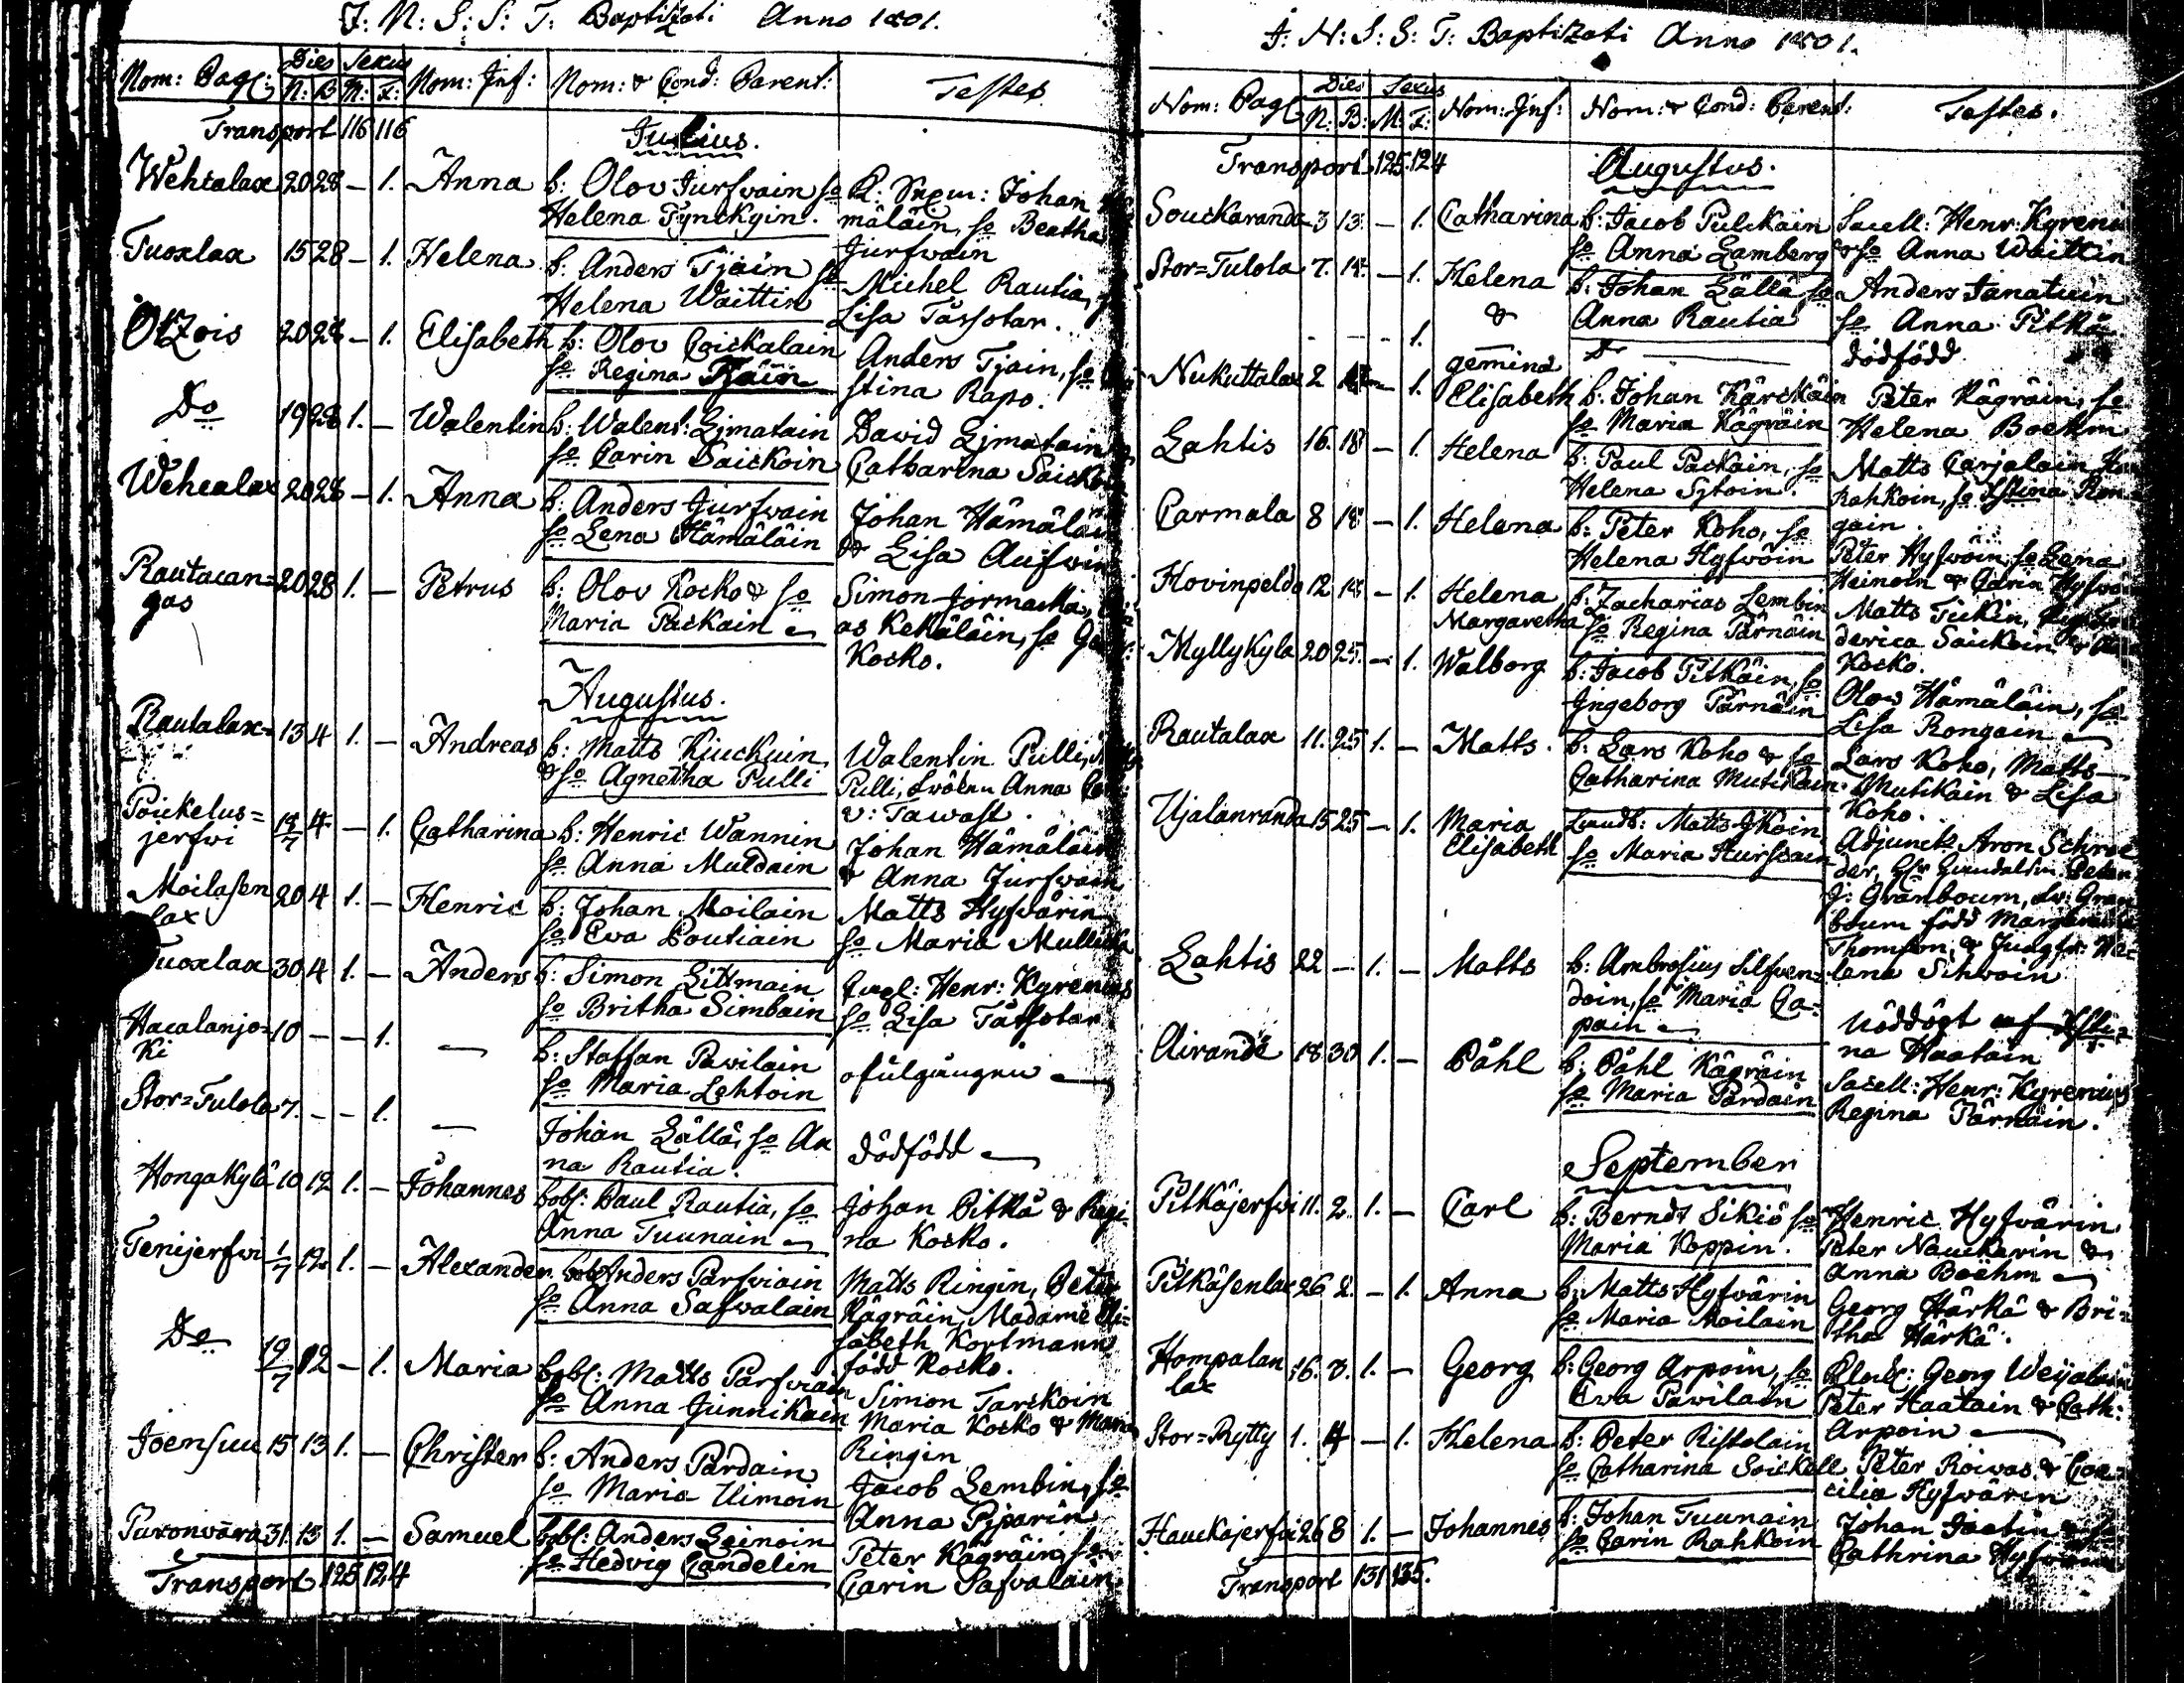 J: N: S: S: T: Baptizati Anno 1801.
Nom: Pag: Dies Sexus Nom: Inf: Nom: & Cond: Parent: Testes
N: B M: F:
Transport 116 116 Julius.
Wehtalax 20 28 – 1. Anna b: Olov Jurfvain so
Helena Tynckyin.
Johan
mäläin, so Beatha
Jurfvain
Tuoxlax 15 28 – 1. Helena b: Anders Tjäin so
Helena Waittin
Michel Rautia,
Lisa Tassotar.
Otzois 20 28 – 1. Elisabeth b: Olov Coickalain
so Regina Tjäin
Anders Tjain, so
stina Rapo.
Do 19 28 1. – Walentin b: Walent: Ljmatain
so Carin Saickoin
David Ljmatain
Catharina
Wehcalax 20 28 – 1. Anna b: Anders Jurfvain
so Lena Hämäläin
Johan
& Lisa
Rautacan=
gas 20 28 1. – Petrus b: Olov Kocko & so
Maria Packain
Simon Jormacka,
as Kekäläin, so
Kocko.
Augustus.
Rautalax 13 4 1. – Andreas b: Matts Kiuckuin
& so Agnetha Pulli
Walentin Pulli,
Pulli, Anna
v: Tawast.
Poickelus=
jerfvi 18/7 4 – 1. Catharina b: Henric Wannin
so Anna Muldain
Johan Hämäläin
& Anna Jurfvain
Moilasen
lax 20 4 1. – Henric b: Johan Moilain
so Eva Poutiain
Matts Hyfvärin
so Maria
Tuoxlax 30 4 1. – Anders b: Simon Littmain
so Britha Simbain
Henr: Kyrenius
so Lisa Tassotar
Hacalanjo=
ki 10 – – 1. – b: Staffan Pavilain
so Maria Lehtoin
ofulgången
Stor=Tulola 7. – – 1. – Johan Lällä, so An
na Rautia.
dödfödd
Hongakylä 10 12 1. – Johannes bobl: Paul Rautia, so
Anna Tuunain
Johan Pitkä & Regi
na Kocko.
Tenijerfvi 1/7 12 1. – Alexander bobl: Anders Parfviain
so Anna Safvalain
Matts Ringin, Peter
Kägräin, Madame Eli=
sabeth Kortmann
född Kocko.
Do 19/7 12 – 1. Maria bobl: Matts Parfviain
so Anna Junnikain
Simon Tarckoin
Maria Kocko & Maria
Ringin
Joensuu 15 13 1. – Christer b: Anders Pardain
so Maria Uimoin
Jacob Lembin, so
Anna Piparin
Puxonvara 31 13 1. – Samuel bobl: Anders Leinoin
so Hedvig Candelin
Peter Kägräin, so
Carin Safvalain.
Transport 125 124
J: N: S: S: T: Baptizati Anno 1801.
Nom: Pag Dies Sexus Nom: Inf: Nom: & Cond: Parent: Testes.
N: B: M: F:
Transport 125 124 Augustus.
Souckaranda 3 13 – 1. Catharina b: Jacob Pulckain
so Anna Lamberg
Sacell: Henr: Kyrenius
& so Anna Waittin
Stor=Tulola 7. 14. – 1. Helena b: Johan Lällä so
Anna Rautia
Anders Janatuin
so Anna Pitkä
&
– – – 1. gemina Do
dödfödd.
Nukuttalax 2 – 1. Elisabeth b: Johan Kärckäin
so Maria Kägräin
Peter Kägräin, so
Helena Boehm
Lahtis 16. 18 – 1. Helena b: Paul Packain, so
Helena Sytoin.
Matts Carjalain
Rahkoin, so Ron
gain.
Carmala 8 18 – 1. Helena b: Peter Koho, so
Helena Hyfwöin
Peter Hyfwöin, so Lena
Heinoin & Carin
Hovinpeldo 12 18 – 1. Helena
Margaretha b: Zacharias Lembin
so Regina Pärnäin
Matts Tickin,
derica Saickoin &
Kocko.
Myllykylä 20 25. – 1. Walborg b: Jacob Pitkäin, so
Ingeborg Pärnäin
Olov Hämäläin, so
Lisa Rongain
Rautalax 11. 25 1. – Matts. b: Lars Koho & so
Catharina Mutikain.
Lars Koho, Matts
Mutikain & Lisa
Koho.
Ujalanranda 15 25 – 1. Maria
Elisabeth Landb: Matts Ikoin
so Maria Kurfvain
Adjunct: Aron Schroe
der,
J: Granboum, Gran
boum född
Thomson, & Jungfr: He=
lena Schwoin
Lahtis 22 – 1. – Matts b: Ambrosius Silfven=
doin, so Maria Ca=
pain
Nöddöpt af
na Haatain
Airandé 18 30 1. – Påhl b: Påhl Kägräin
so Maria Pardain
Sacell: Henr: Kyrenius
Regina Pärnäin.
September
Pitkäjerfvi 11. 2. 1. – Carl b: Berndt Sikiö so
Maria Koppin.
Henric Hyfvärin
Peter Nauckarin &
Anna Boëhm
Pitkäsenlax 26 2. – 1. Anna b: Matts Hyfvärin
so Maria Moilain
Georg Härkä & Bri=
tha Härkä.
Hompalan
lax 16. 1. – Georg b: Georg Arpoin, so
Eva Pavilain
Georg
Peter Haatain & Cath:
Arpoin
Stor=Rytty 1. 4 – 1. Helena b: Peter Ristolain
so Catharina Soickell
Peter Roivas & Coe=
cilia Hyfvärin
Hauckajerfvi 26 8 1. – Johannes b: Johan Tuunain
so Carin Rahkoin
Johan
Cathrina
Transport 131 135.